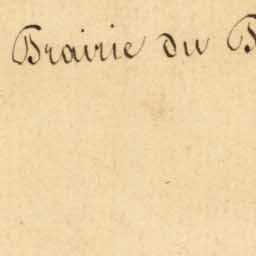 Prairie du